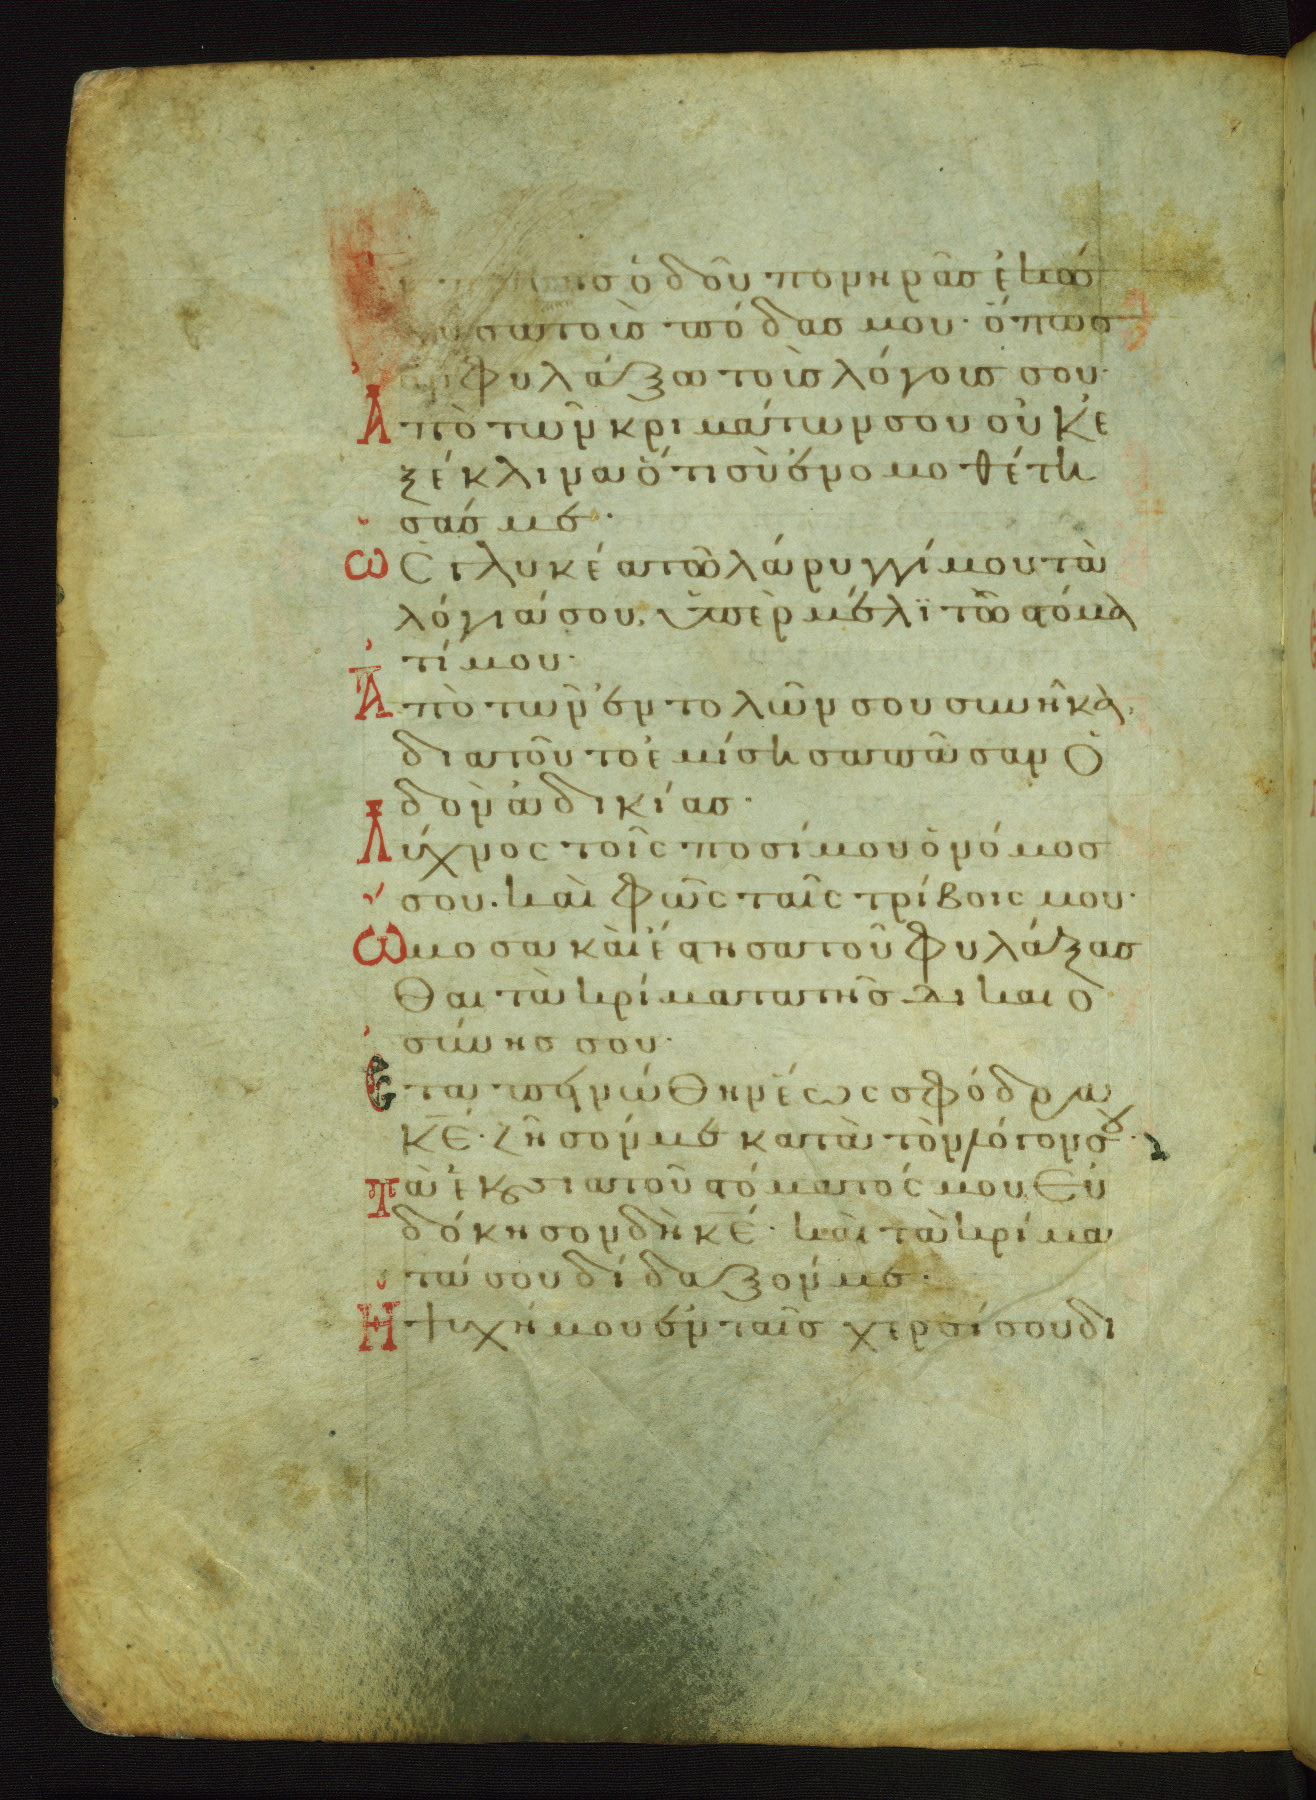 ης ὁδοῦ πονηρᾶς ἐκώ
λυσα τοὺς πόδας μου· ὅπως
ἂν φυλάξω τοὺς λόγους σου·
Ἀπὸ τῶν κριμάτων σου οὐκ ἐ
ξέκλινα ὅτι σὺ ἐνομοθέτη
σάς με·
Ὡς γλυκέα τῶ λάρυγγί μου τὰ
λόγιά σου, ὑπὲρ μέλϊ τῶ στόμα
τί μου·
Ἀπὸ τῶν ἐντολῶν σου συνῆκα,
διατοῦτο ἐμίσησα πᾶσαν ὁ
δὸν ἀδικίας·
Λύχνος τοῖς ποσί μου ὁ νόμος
σου. καὶ φῶς ταῖς τρίβοις μου·
Ὤμοσα καὶ ἔστησα τοῦ φυλάξασ
θαι τὰ κρίματα τῆς δικαιο
σύνης σου·
Ἐταπεινώθην ἕως σφόδρα
κ̅ε̅· ζῆσόν με κατὰ τὸν λόγον σου·
Τὰ ἑκούσια τοῦ στόματός μου εὐ
δόκησον δὴ κ̅ε̅· καὶ τὰ κρίμα
τά σου δίδαξόν με·
Ἡ ψυχή μου ἐν ταῖς χερσί σου δι